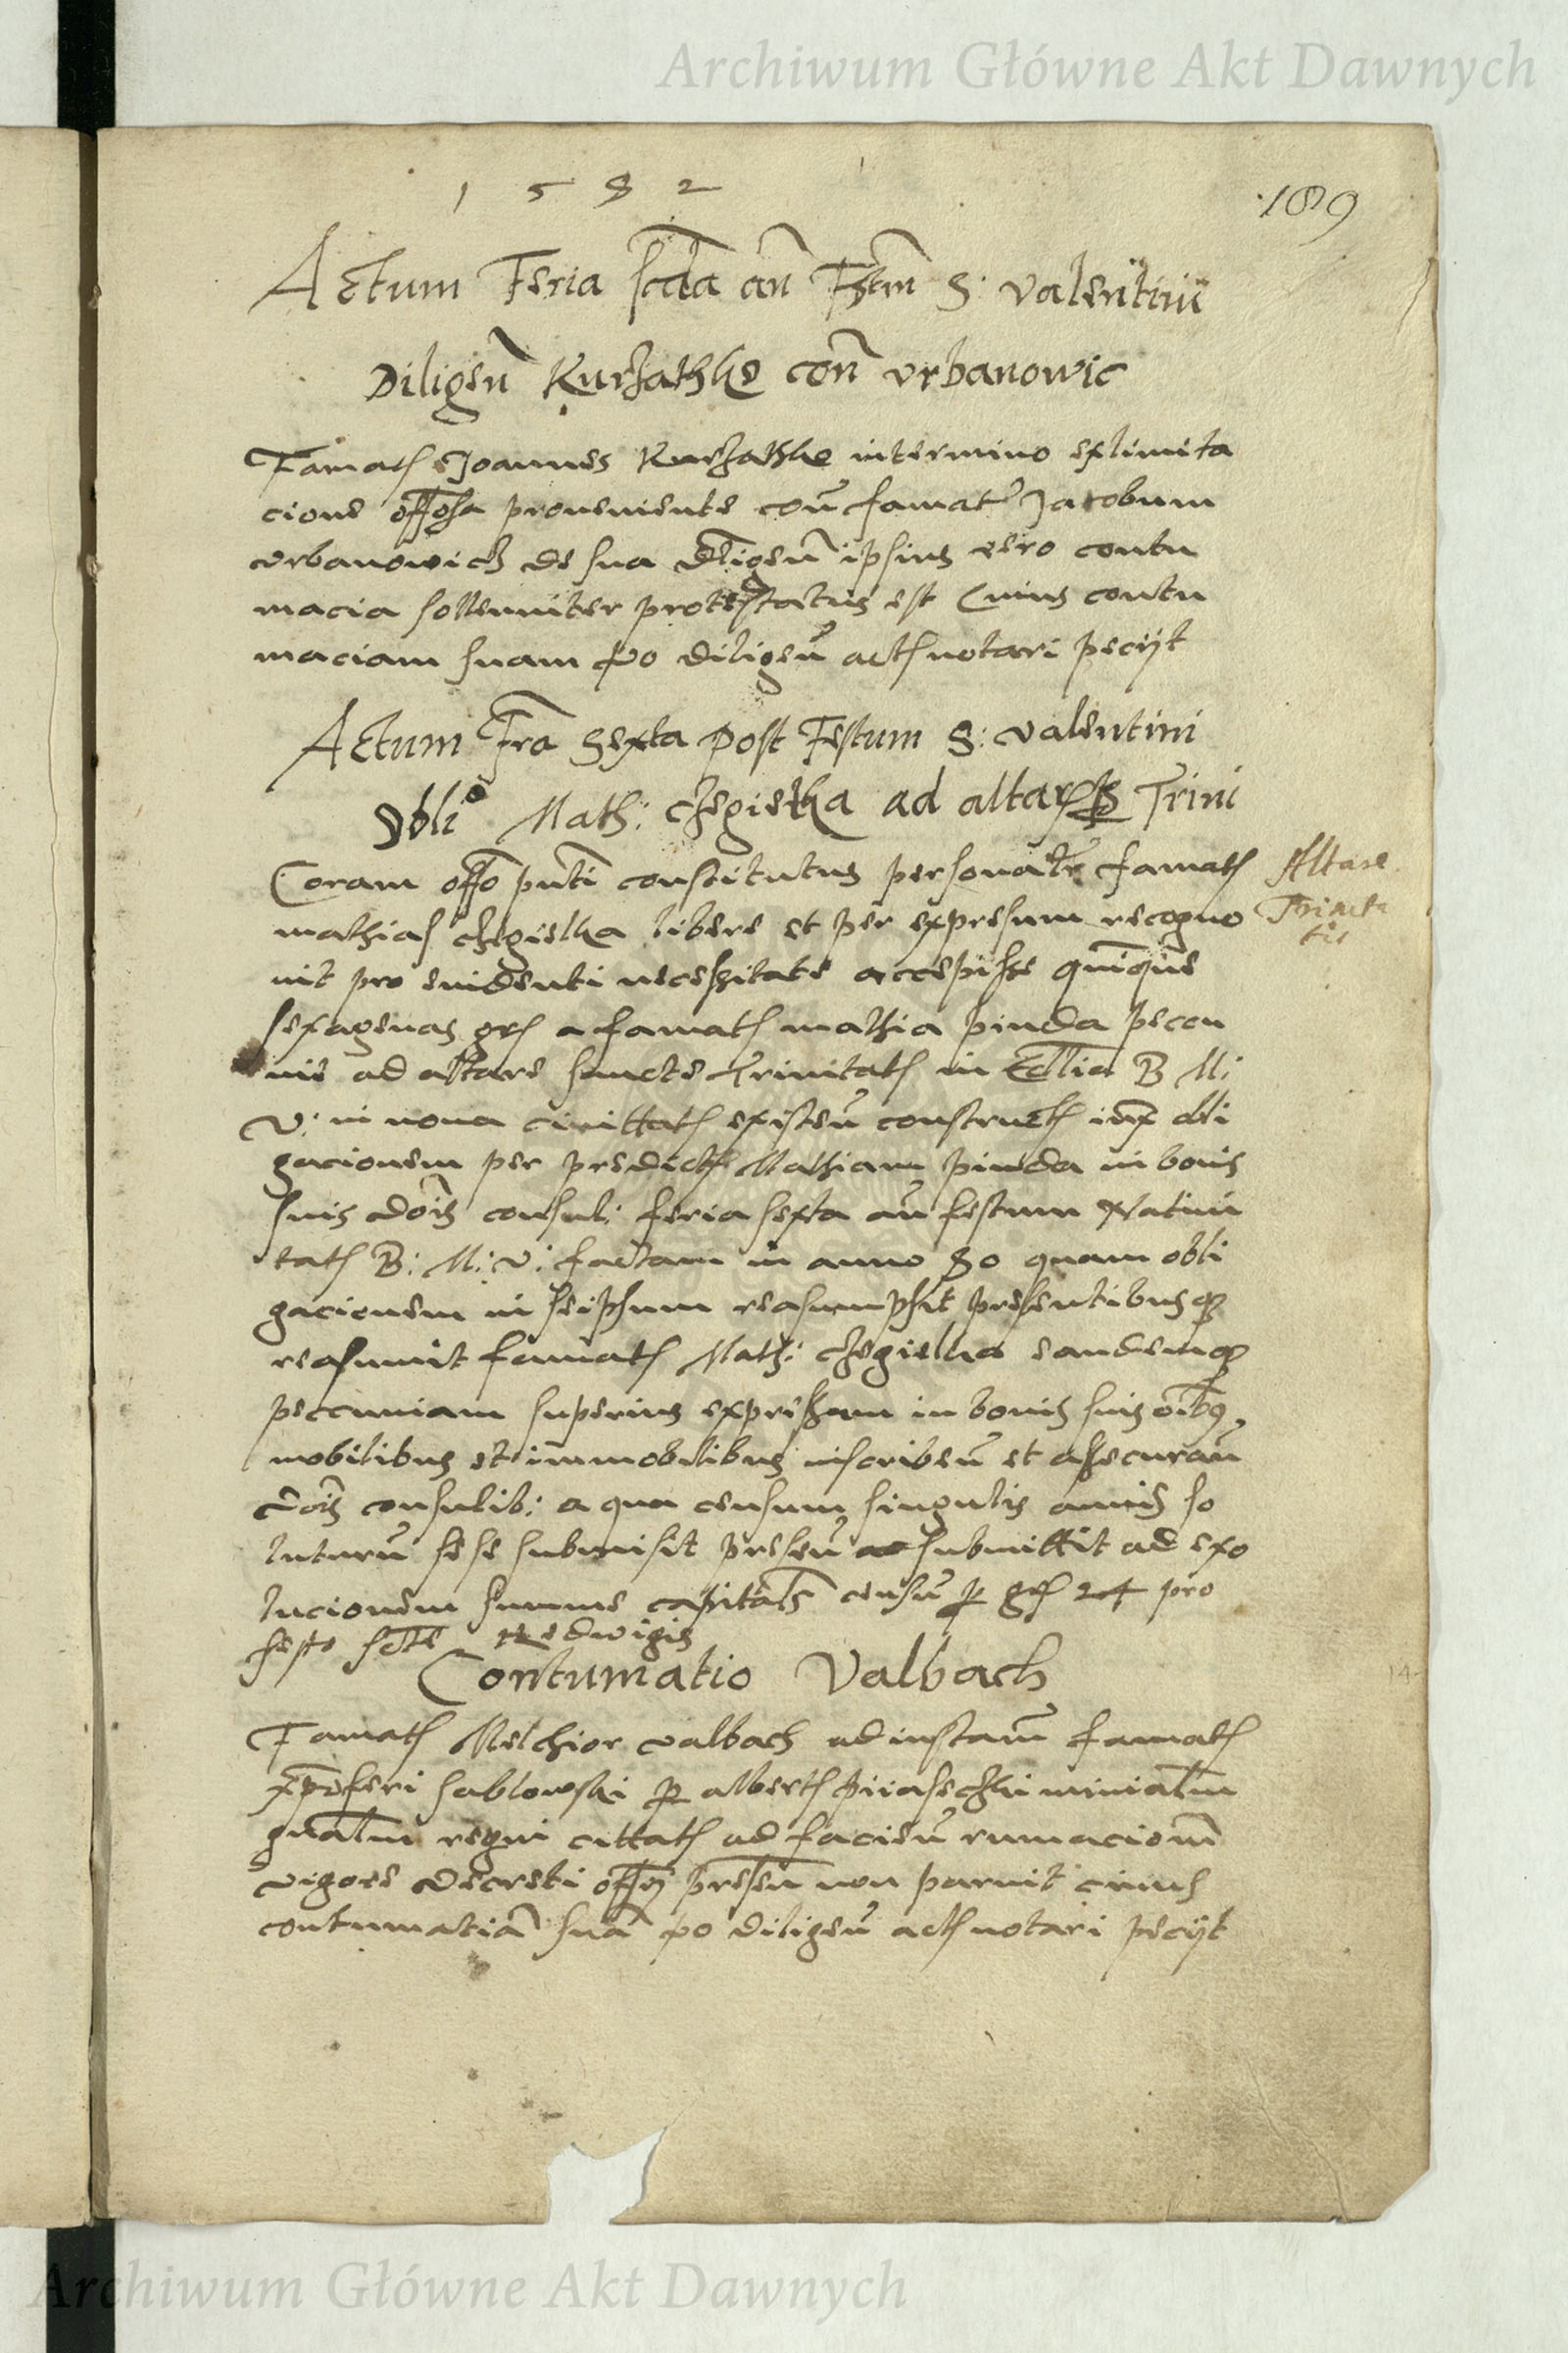 Archiwum Główne Akt Dawnych
1582
189
Actum Feria scda an Fstm S: Valentini
Diligen Kurzathko con Vrbanowic
Famats Joannes Kurzathko in termino ex limita
cione offosa proueniente con famat Jacobum
Vrbanowicz de sua diligen ipsius vero contu
macia sollenniter protestatus est Cuius contu
maciam suam qo diligen acts notari peciit
Actum Fra Sexta Post Festum S: Valentini
Obli Math: Czegielka ad altar Trini
Coram offo pnti constitutus personatr famats
Mathias Czegielka libere et per expresum recogno
uit pro euidenti necessitate accepisse quinque
sexagenas grs a famats Mathia Pinda pecu
nie ad altare sancte Trinitats in Ecclia B M:
V: in noua ciuittats existen constructs iux obli
gacionem per predicts Mathiam Pinda in bonis
suis dois consuli: feria sexta an festum Natiui
tats B: M: V: factam in anno 80 quam obli
gacionem in seipsum reasumpsit presentibusq
reasumit famats Math: Czegielka eandemq
peccuniam superius expressam in bonis suis oibus
mobilibus et immobilibus inscriben et assecuran
dois consulib: a qua censum singulis annis so
luturu sese submisit presen submittit ad exo
lucionem summe capitals censu p grs 24 pro
festo scte Hedwigis
Altare
Trinita
tis
Contumatio Valbach
Famats Melchior Valbach ad instam famats
Xpoferi Sablowski p alberts ministm
gnalm regni cittats ad facien rumacionm
vigore decreti offy presen non paruit cuius
contumatia sua po diligen acts notari peciit
Archiwum Główne Akt Dawnych